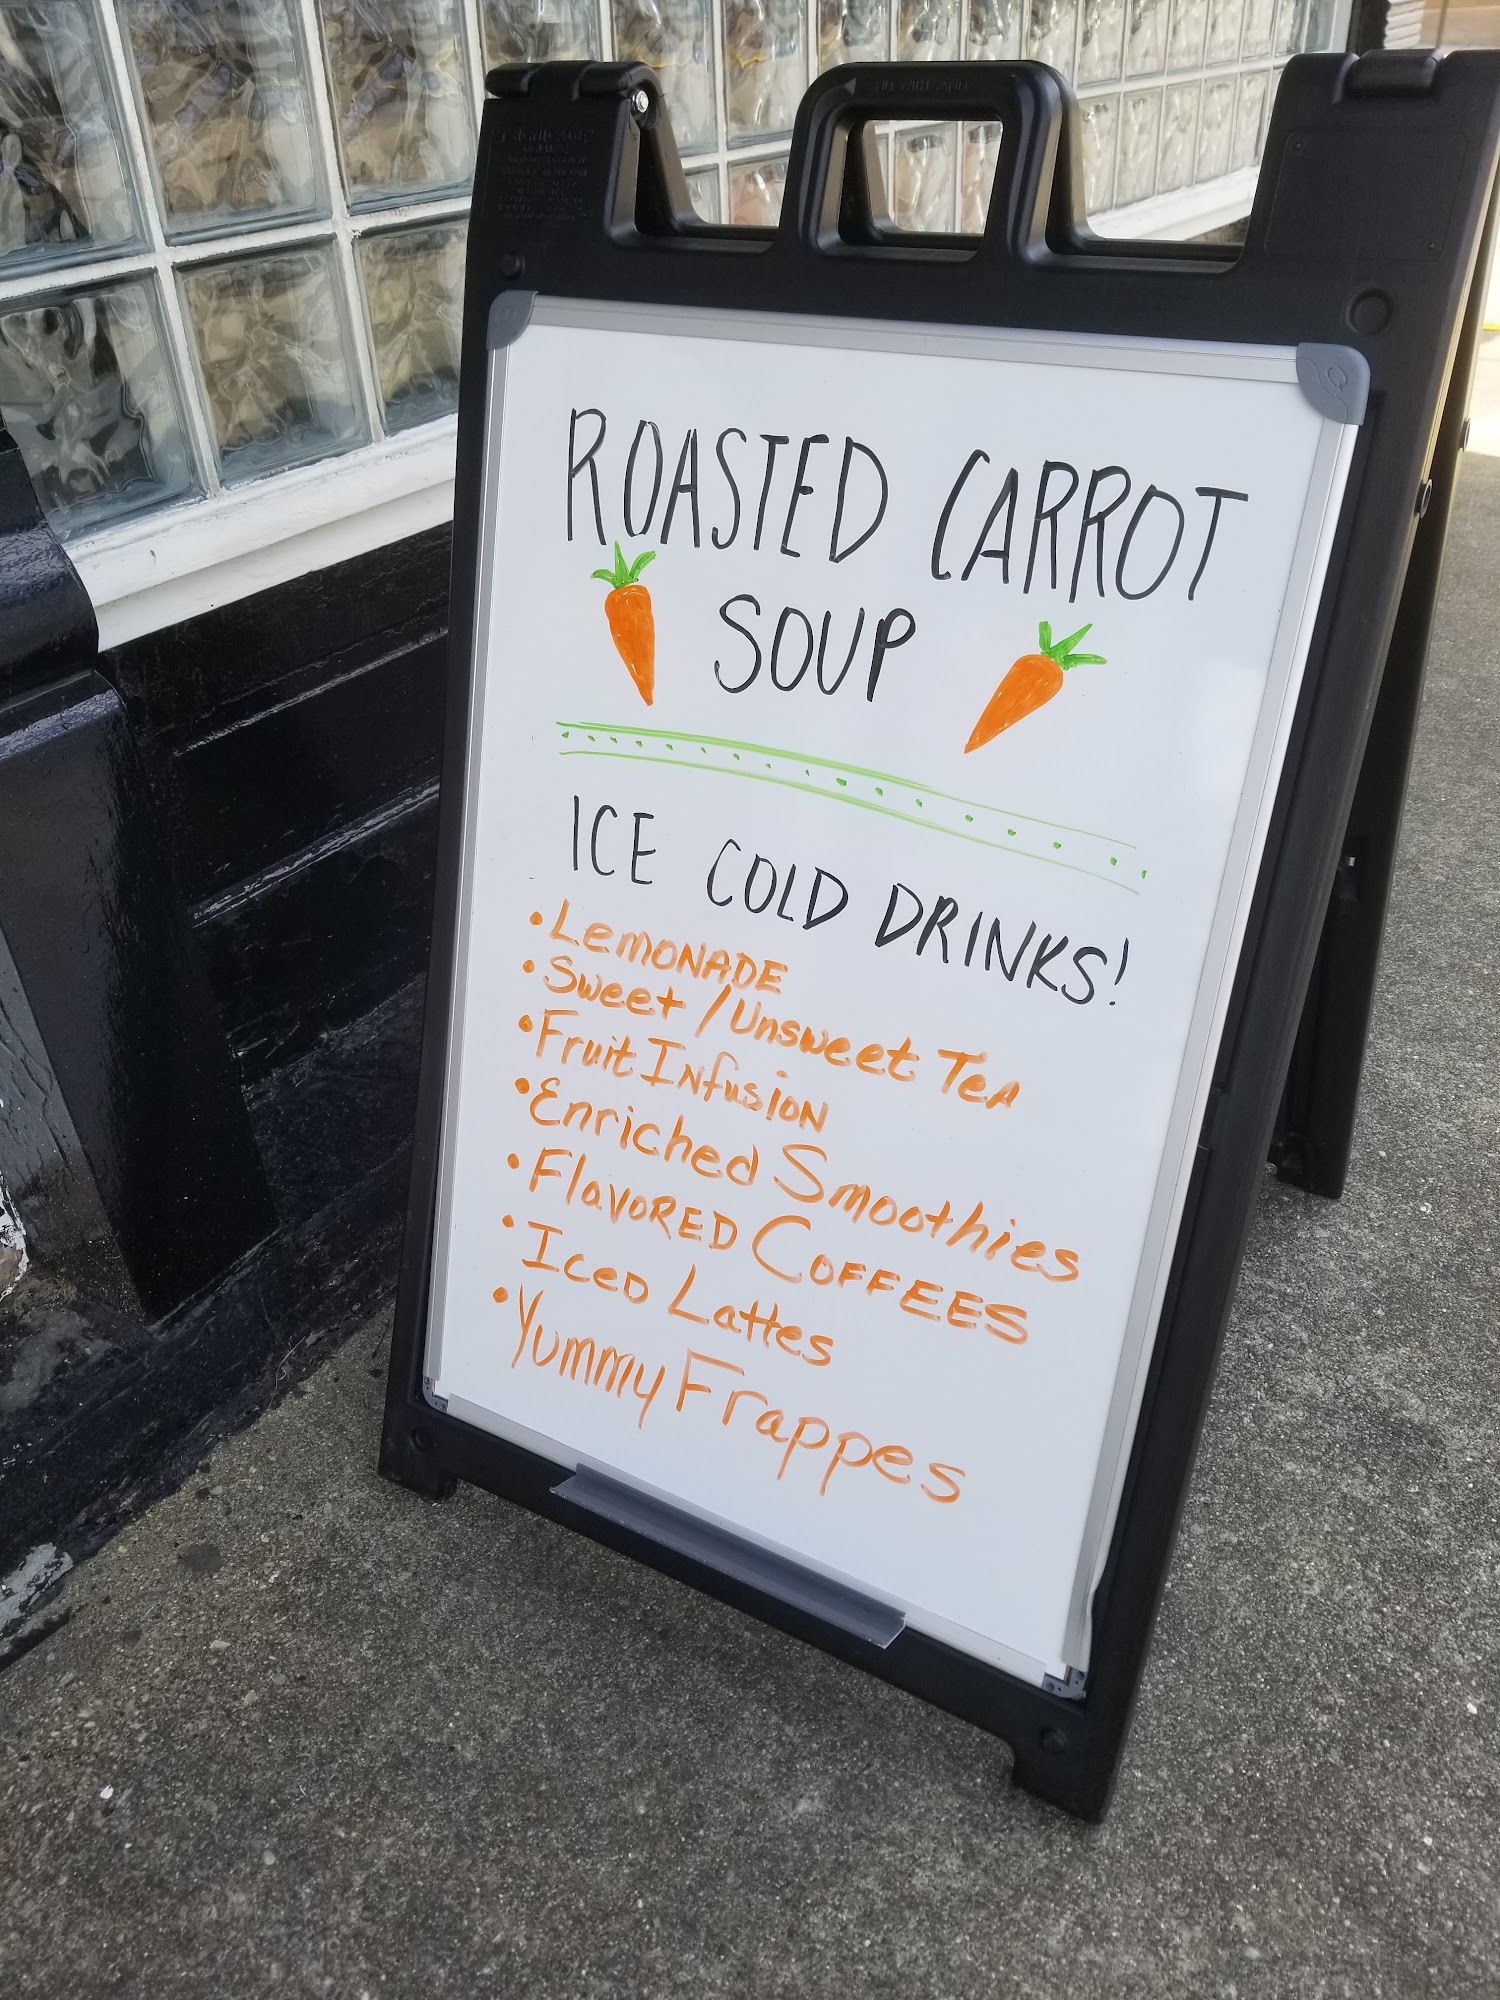 ROASTED CARROT
SOUP
ICE COLD DRINKS!
• LEMONADE
• Sweet / Unsweet TEA
• Fruit INfusiON
• Enriched Smoothies
• FlavORED COFFEES
• IceD Lattes
• Yummy Frappes